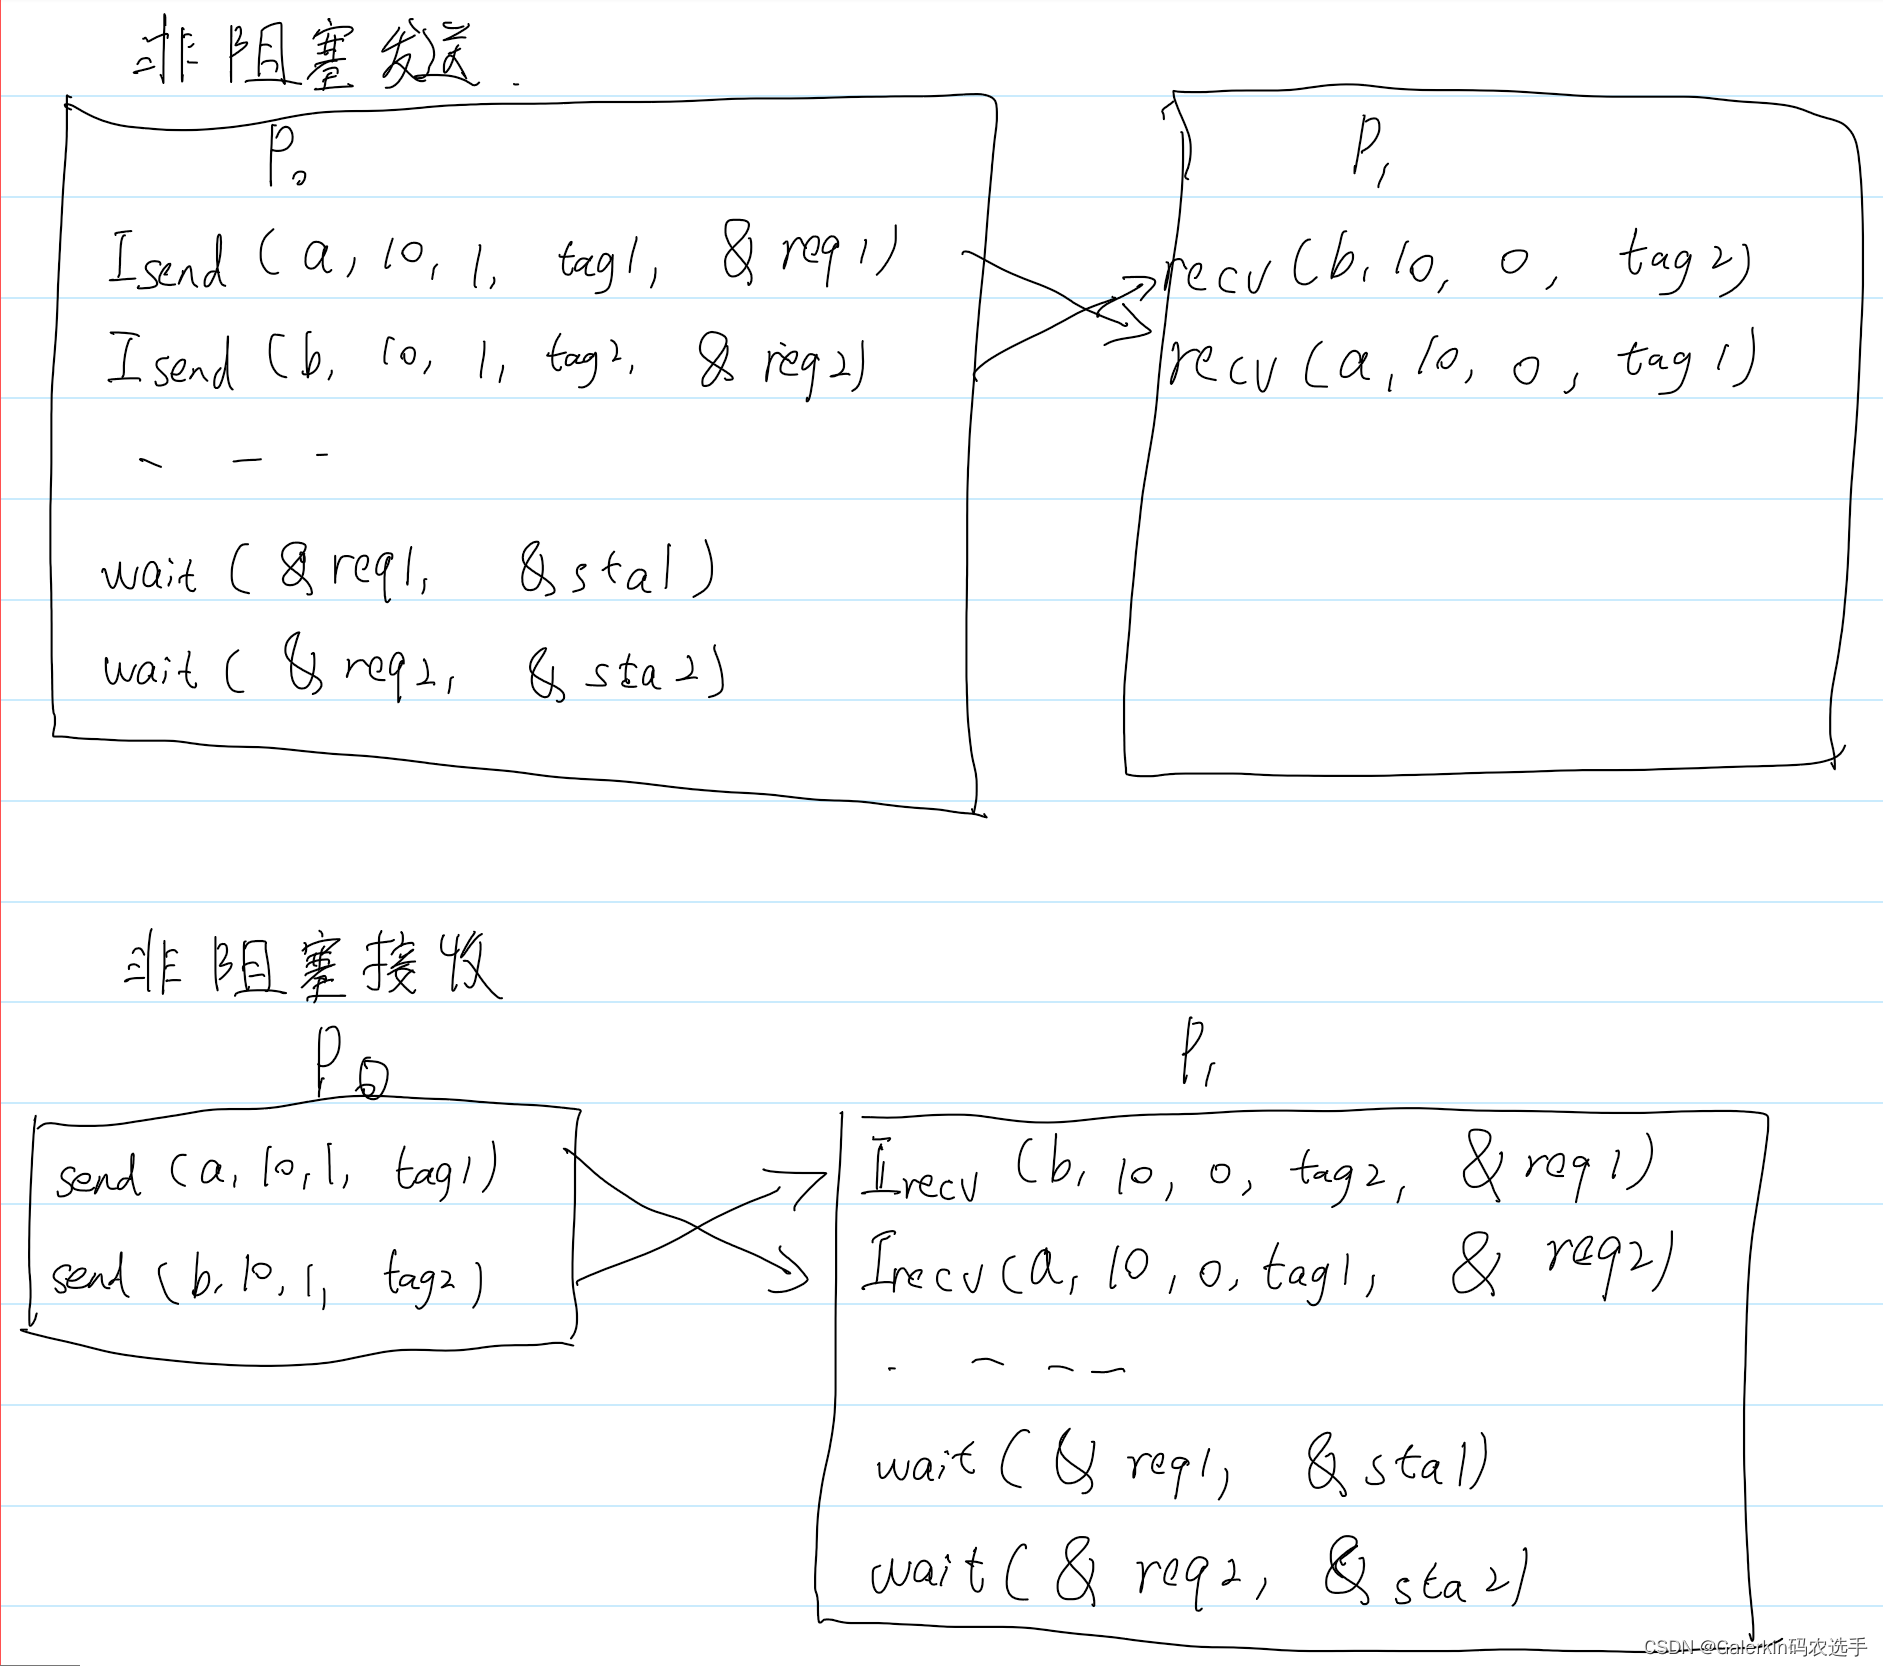 非阻塞发送.
P0
Isend (a, 10, 1, tag1, & req1)
Isend (b, 10, 1, tag2, & req2)
wait ( & req1, & sta1 )
wait ( & req2, & sta2)
P1
recv (b, 10, 0, tag2)
recv (a, 10, 0, tag1)
非阻塞接收
P0
send (a, 10, 1, tag1)
send (b, 10, 1, tag2)
P1
Irecv (b, 10, 0, tag2, & req1)
Irecv (a, 10, 0, tag1, & req2)
wait ( & req1, & sta1)
wait ( & req2, & sta2)
CSDN @Galerkin码农选手